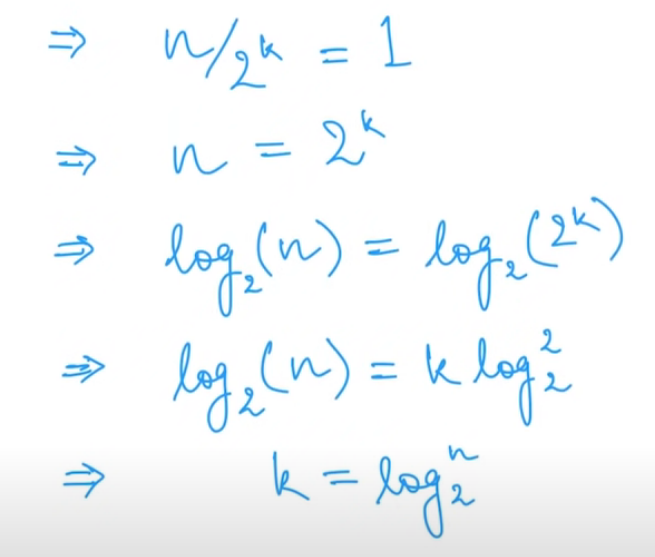 ⇒ n/2^k = 1
⇒ n = 2^k
⇒ log₂(n) = log₂(2^k)
⇒ log₂(n) = k log₂²
⇒ k = log₂ⁿ